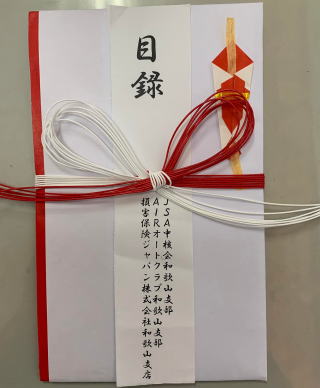 目録
JSA中核会和歌山支部
AIRオートクラブ和歌山支部
損害保険ジャパン株式会社和歌山支店